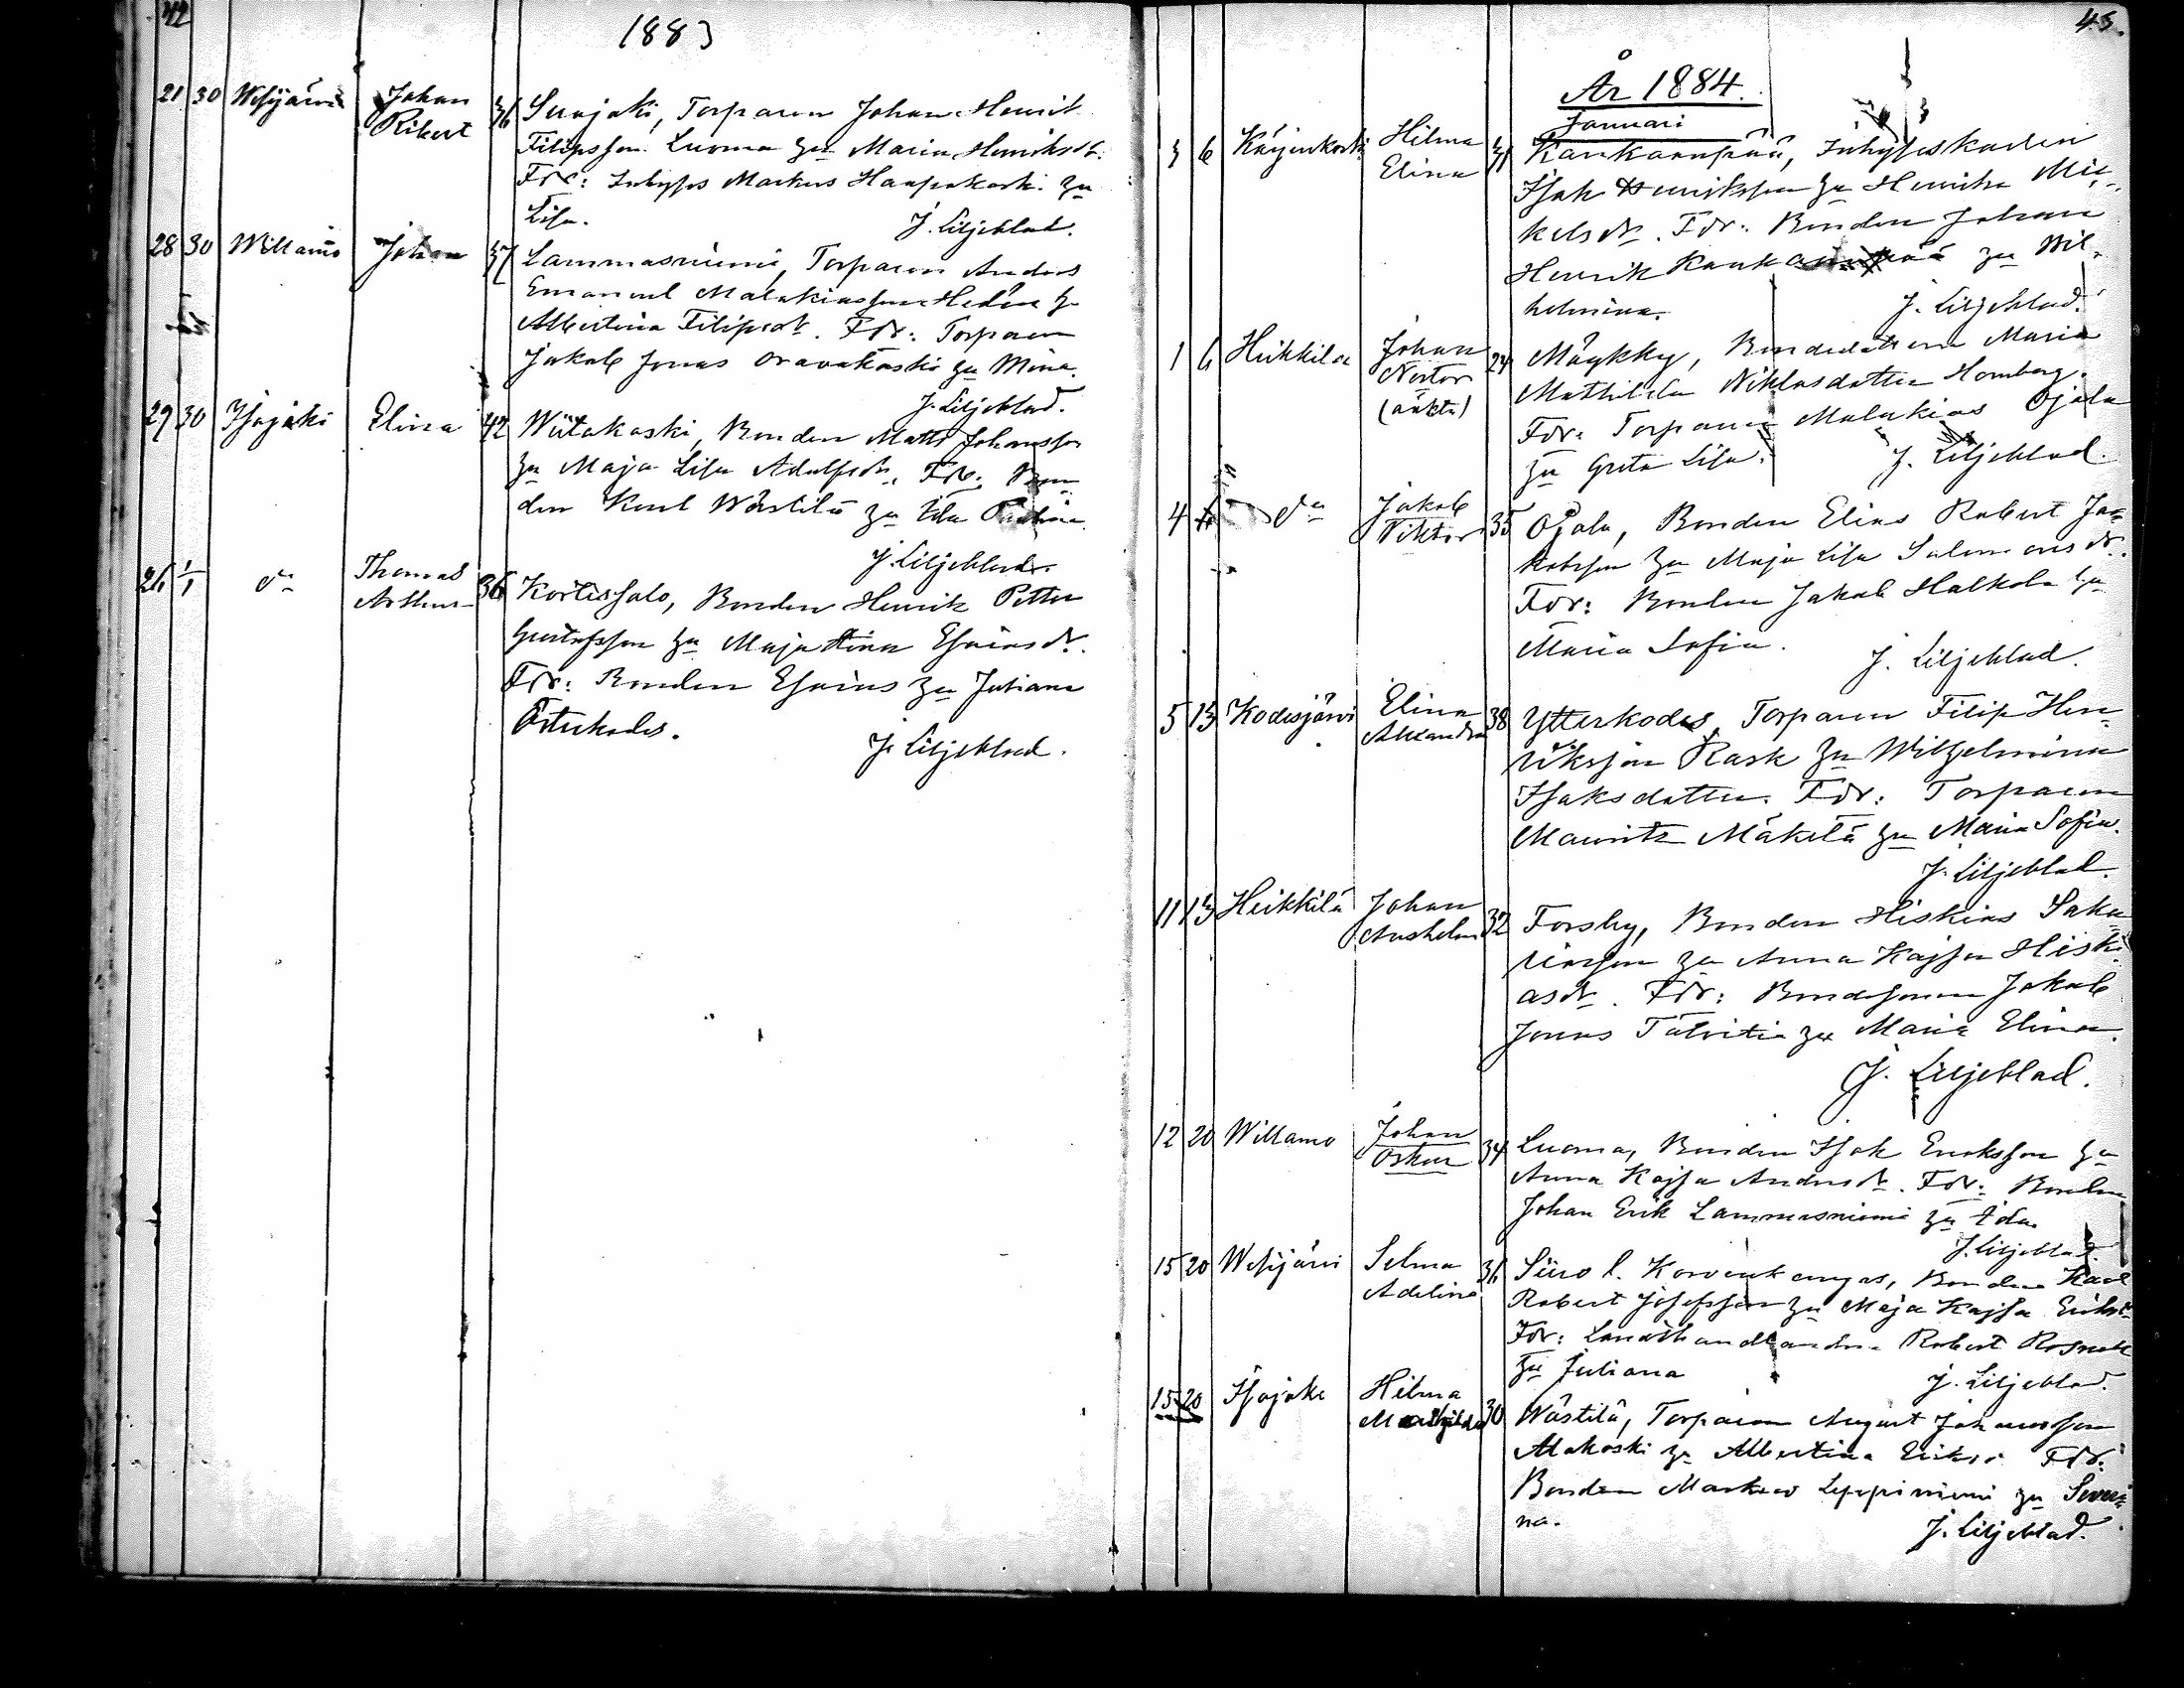 42
1883
21 30 Wesijärvi Johan 36 Suojoki, Torparen Johan Henrik
Rikert Filipsson Luoma Hu Maria Henriksdr.
Fdr: Inhyses Markus Haapakoski Hu
Lisa. J. Liljeblad.
28 30 Willamo Johan 37 Lammasniemi, Torparen Anders
Emanuel Malakiasson Hedén Hu
Albertina Filipsdr. Fdr: Torparen
Jakob Jonas Oravakoski Hu Mina.
J. Liljeblad.
29 30 Isojoki Elina 42 Wiitakoski, Bonden Matts Johansson
Hu Maja Lisa Adolfsdr. Fdr: Bon
den Karl Wästilä Hu Ida
J. Liljeblad.
26 1/1 do Thomas 36 Kortessalo, Bonden Henrik Petter
Arthur Gustafsson Hu Maja Stina Esaiasdr.
Fdr: Bonden Esaias Hu Juliana
Österkodes. J. Liljeblad.
45.
År 1884.
Januari
3 6 Käyenkoski Hilma 31 Kankaanpää, Inhyseskarlen
Elina Isak Henriksson Hu Henrika Mic-
kelsdr. Fdr: Bonden Johan
Henrik Kankaanpää Hu Wil-
helmina. J. Liljeblad.
1 6 Heikkilä Johan 24 Mäykky, Bondedottern Maria
Nestor Mathilda Niklasdotter Homberg.
(oäkta) Fdr: Torparen Malakias Ojala
Hu Greta Lisa. J. Liljeblad.
4 6 do Jakob 35 Ojala, Bonden Elias Robert Ja-
Viktor kobsson Hu Maja Lisa Salomonsdr.
Fdr: Bonden Jakob Halkola Hu
Maria Sofia. J. Liljeblad.
5 13 Kodesjärvi Elina 38 Ytterkodes, Torparen Filip Hen-
Alexandra riksson Rask Hu Wilhelmina
Isaksdotter. Fdr: Torparen
Maurits Mäkelä Hu Maria Sofia.
J. Liljeblad.
11 13 Heikkilä Johan 32 Forsby, Bonden Hiskias Saka-
Anshelm riasson Hu Anna Kajsa Hiski-
asdr. Fdr: Bondesonen Jakob
Jonas Talvitie Hu Maria Elina.
J. Liljeblad.
12 20 Willamo Johan 34 Luoma, Bonden Isak Eriksson Hu
Oskar Anna Kajsa Andersdr. Fdr: Bonden
Johan Erik Lammasniemi Hu Ida.
J. Liljeblad.
15 20 Wesijärvi Selma 36 Siiro l. Korvenkangas, Bonden Karl
Adelina Robert Josefsson Hu Maja Kajsa Eriksd.
Fdr: Lanthandlanden Robert Rosnell
Hu Juliana J. Liljeblad.
15 20 Isojoki Hilma 30 Wästilä, Torparen August Johansson
Mathilda Alakoski Hu Albertina Eriksd. Fdr:
Bonden Markus Leppiniemi Hu Seve-
na. J. Liljeblad.